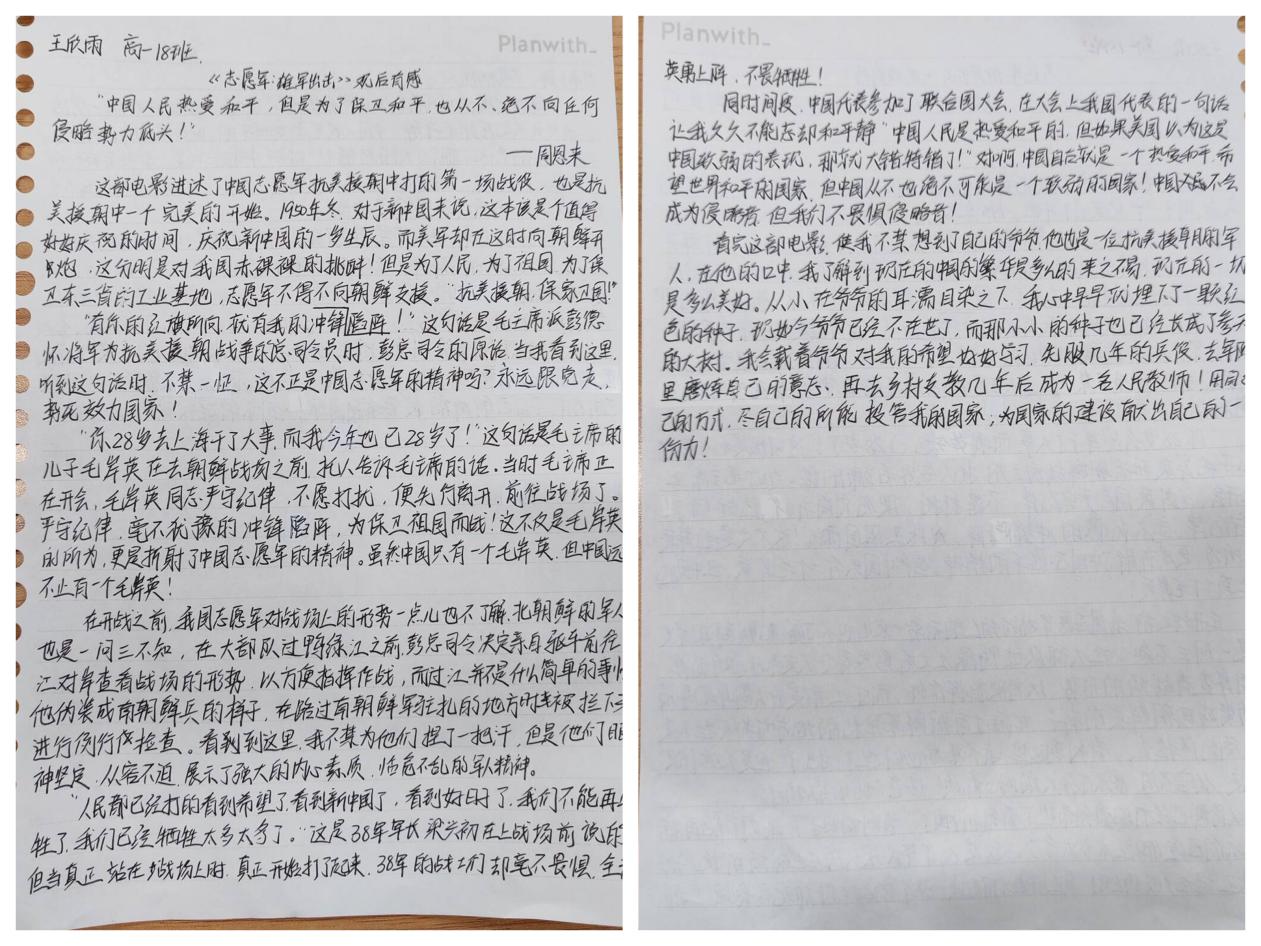 王欣雨 高一18班.
Planwith_
《志愿军:雄军出击》观后有感
"中国人民热爱和平,但是为了保卫和平,也从不、绝不向任何
侵略势力低头!"
——周恩来
这部电影讲述了中国志愿军抗美援朝中打的第一场战役,也是抗
美援朝中一个完美的开始。1950年冬,对于新中国来说,这本该是个值得
好好庆祝的时间,庆祝新中国的一岁生辰。而美军却在这时向朝鲜开
炮,这分明是对我国赤裸裸的挑衅!但是为了人民,为了祖国,为了保
卫东三省的工业基地,志愿军不得不向朝鲜支援。"抗美援朝,保家卫国!"
"有你的红旗所向,就有我的冲锋陷阵!"这句话是毛主席派彭德
怀将军为抗美援朝战争的总司令员时,彭总司令的原话,当我看到这里,
听到这句话时,不禁一怔,这不正是中国志愿军的精神吗?永远跟党走,
势死效力国家!
"你28岁去上海干了大事,而我今年也已28岁了!"这句话是毛主席的
儿子毛岸英在去朝鲜战场之前,托人告诉毛主席的话。当时毛主席正
在开会,毛岸英同志严守纪律,不愿打扰,便先行离开,前往战场了。
严守纪律,毫不犹豫的冲锋陷阵,为保卫祖国而战!这不仅是毛岸英
的所为,更是折射了中国志愿军的精神。虽然中国只有一个毛岸英,但中国远
不止有一个毛岸英!
在开战之前,我国志愿军对战场上的形势一点儿也不了解,北朝鲜的军人
也是一问三不知,在大部队过鸭绿江之前,彭总司令决定亲自驱车前往
江对岸查看战场的形势,以方便指挥作战,而过江并不是什么简单的事情
他伪装成南朝鲜兵的样子,在路过南朝鲜军驻扎的地方时被拦下来
进行例行检查。看到这里,我不禁为他们捏了一把汗,但是他们眼
神坚定,从容不迫,展示了强大的内心素质,临危不乱的军人精神。
"人民都已经打的看到希望了,看到新中国了,看到好日子了,我们不能再牺
牲了,我们已经牺牲太多太多了。"这是38军军长梁兴初在上战场前说的
但当真正站在战场上时,真正开始打了起来,38军的战士们却毫不畏惧,全部
Planwith_
英勇上阵,不畏牺牲!
同时间段,中国代表参加了联合国大会,在大会上我国代表的一句话
让我久久不能忘却和平静"中国人民是热爱和平的,但如果美国以为这是
中国软弱的表现,那就大错特错了!"对啊,中国自古就是一个热爱和平,希
望世界和平的国家,但中国从不也绝不可能是一个软弱的国家!中国人民不会
成为侵略者,但我们不畏惧侵略者!
看完这部电影,使我不禁想到了自己的爷爷,他也是一位抗美援朝的军
人,在他的口中,我了解到现在的中国的繁华是多么的来之不易,现在的一切
是多么美好。从小在爷爷的耳濡目染之下,我心中早早就埋下了一颗红
色的种子,现如今爷爷已经不在世了,而那小小的种子也已经长成了参天
的大树。我会载着爷爷对我的希望好好学习,先服几年的兵役,去军队
里磨炼自己的意志,再去乡村支教几年后成为一名人民教师!用自
己的方式,尽自己的所能报答我的国家,为国家的建设献出自己的一
份力!